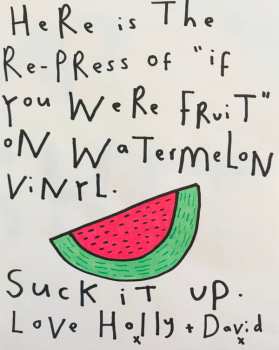 HeRe is THe
Re-PRess of "if
you WeRe FRuiT"
oN WaTeRmeLoN
ViNyL.
Suck iT uP.
Love Holly + David
x x